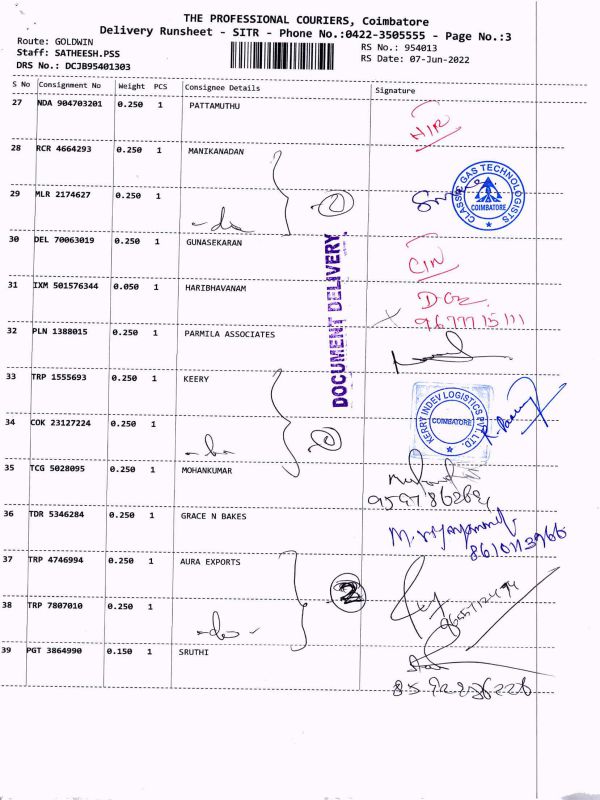 THE PROFESSIONAL COURIERS, Coimbatore
Delivery Runsheet - SITR - Phone No.:0422-3505555 - Page No.:3
Route: GOLDWIN
RS No.: 954013
Staff: SATHEESH.PSS
RS Date: 07-Jun-2022
DRS No.: DCJB95401303
S No Consignment No Weight PCS Consignee Details Signature
27 NDA 904703201 0.250 1 PATTAMUTHU
28 RCR 4664293 0.250 1 MANIKANADAN
29 MLR 2174627 0.250 1
CLASSIC GAS TECHNOLOGISTS
COIMBATORE
30 DEL 70063019 0.250 1 GUNASEKARAN
31 IXM 501576344 0.050 1 HARIBHAVANAM
DOCUMENT DELIVERY
32 PLN 1388015 0.250 1 PARMILA ASSOCIATES
33 TRP 1555693 0.250 1 KEERY
KERRY INDEV LOGISTICS PVT. LTD.
COIMBATORE
34 COK 23127224 0.250 1
35 TCG 5028095 0.250 1 MOHANKUMAR
36 TDR 5346284 0.250 1 GRACE N BAKES
37 TRP 4746994 0.250 1 AURA EXPORTS
2
38 TRP 7807010 0.250 1
39 PGT 3864990 0.150 1 SRUTHI